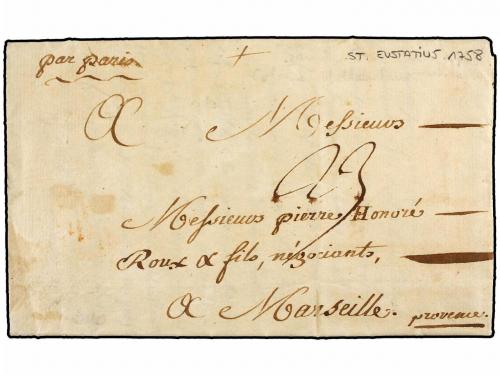 par paris
ST. EUSTATIUS 1758
A Messieurs
23
Messieurs pierre Honoré
Roux & fils, négociants,
A Marseille.
provence.